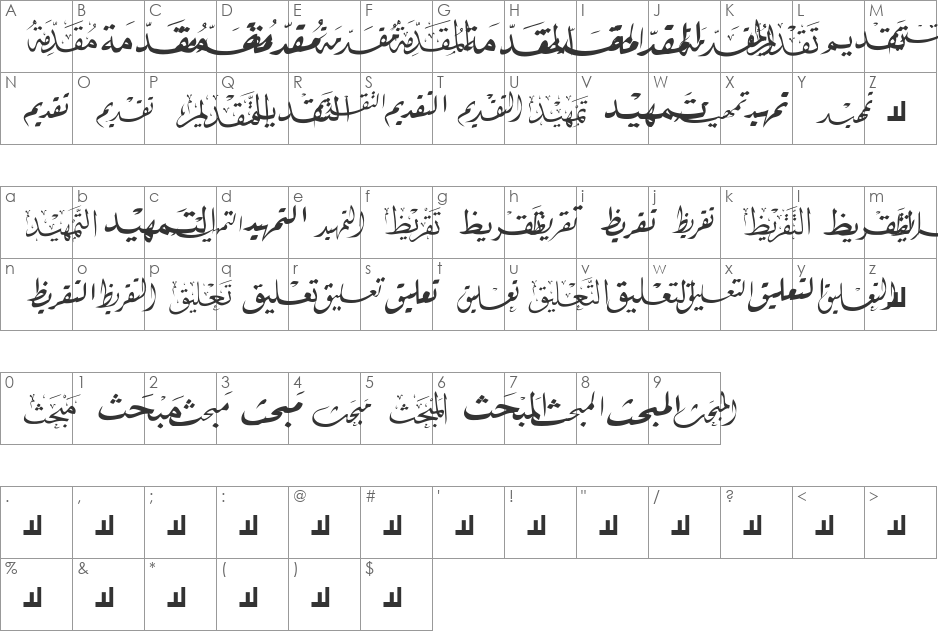 A B C D E F G H I J K L M
مقدمة مقدمة مقدمة مقدمة مقدمة المقدمة المقدمة المقدمة المقدمة المقدمة تقديم تقديم تقديم
N O P Q R S T U V W X Y Z
تقديم تقديم التقديم التقديم التقديم التقديم التقديم تمهيد تمهيد تمهيد تمهيد تمهيد لا
a b c d e f g h i j k l m
التمهيد التمهيد التمهيد التمهيد التمهيد تقريظ تقريظ تقريظ تقريظ تقريظ التقريظ التقريظ التقريظ
n o p q r s t u v w x y z
التقريظ التقريظ تعليق تعليق تعليق تعليق تعليق التعليق التعليق التعليق التعليق التعليق لا
0 1 2 3 4 5 6 7 8 9
مبحث مبحث مبحث مبحث مبحث المبحث المبحث المبحث المبحث المبحث
. , ; : @ # ' ! " / ? < >
لا لا لا لا لا لا لا لا لا لا لا لا لا
% & * ( ) $
لا لا لا لا لا لا